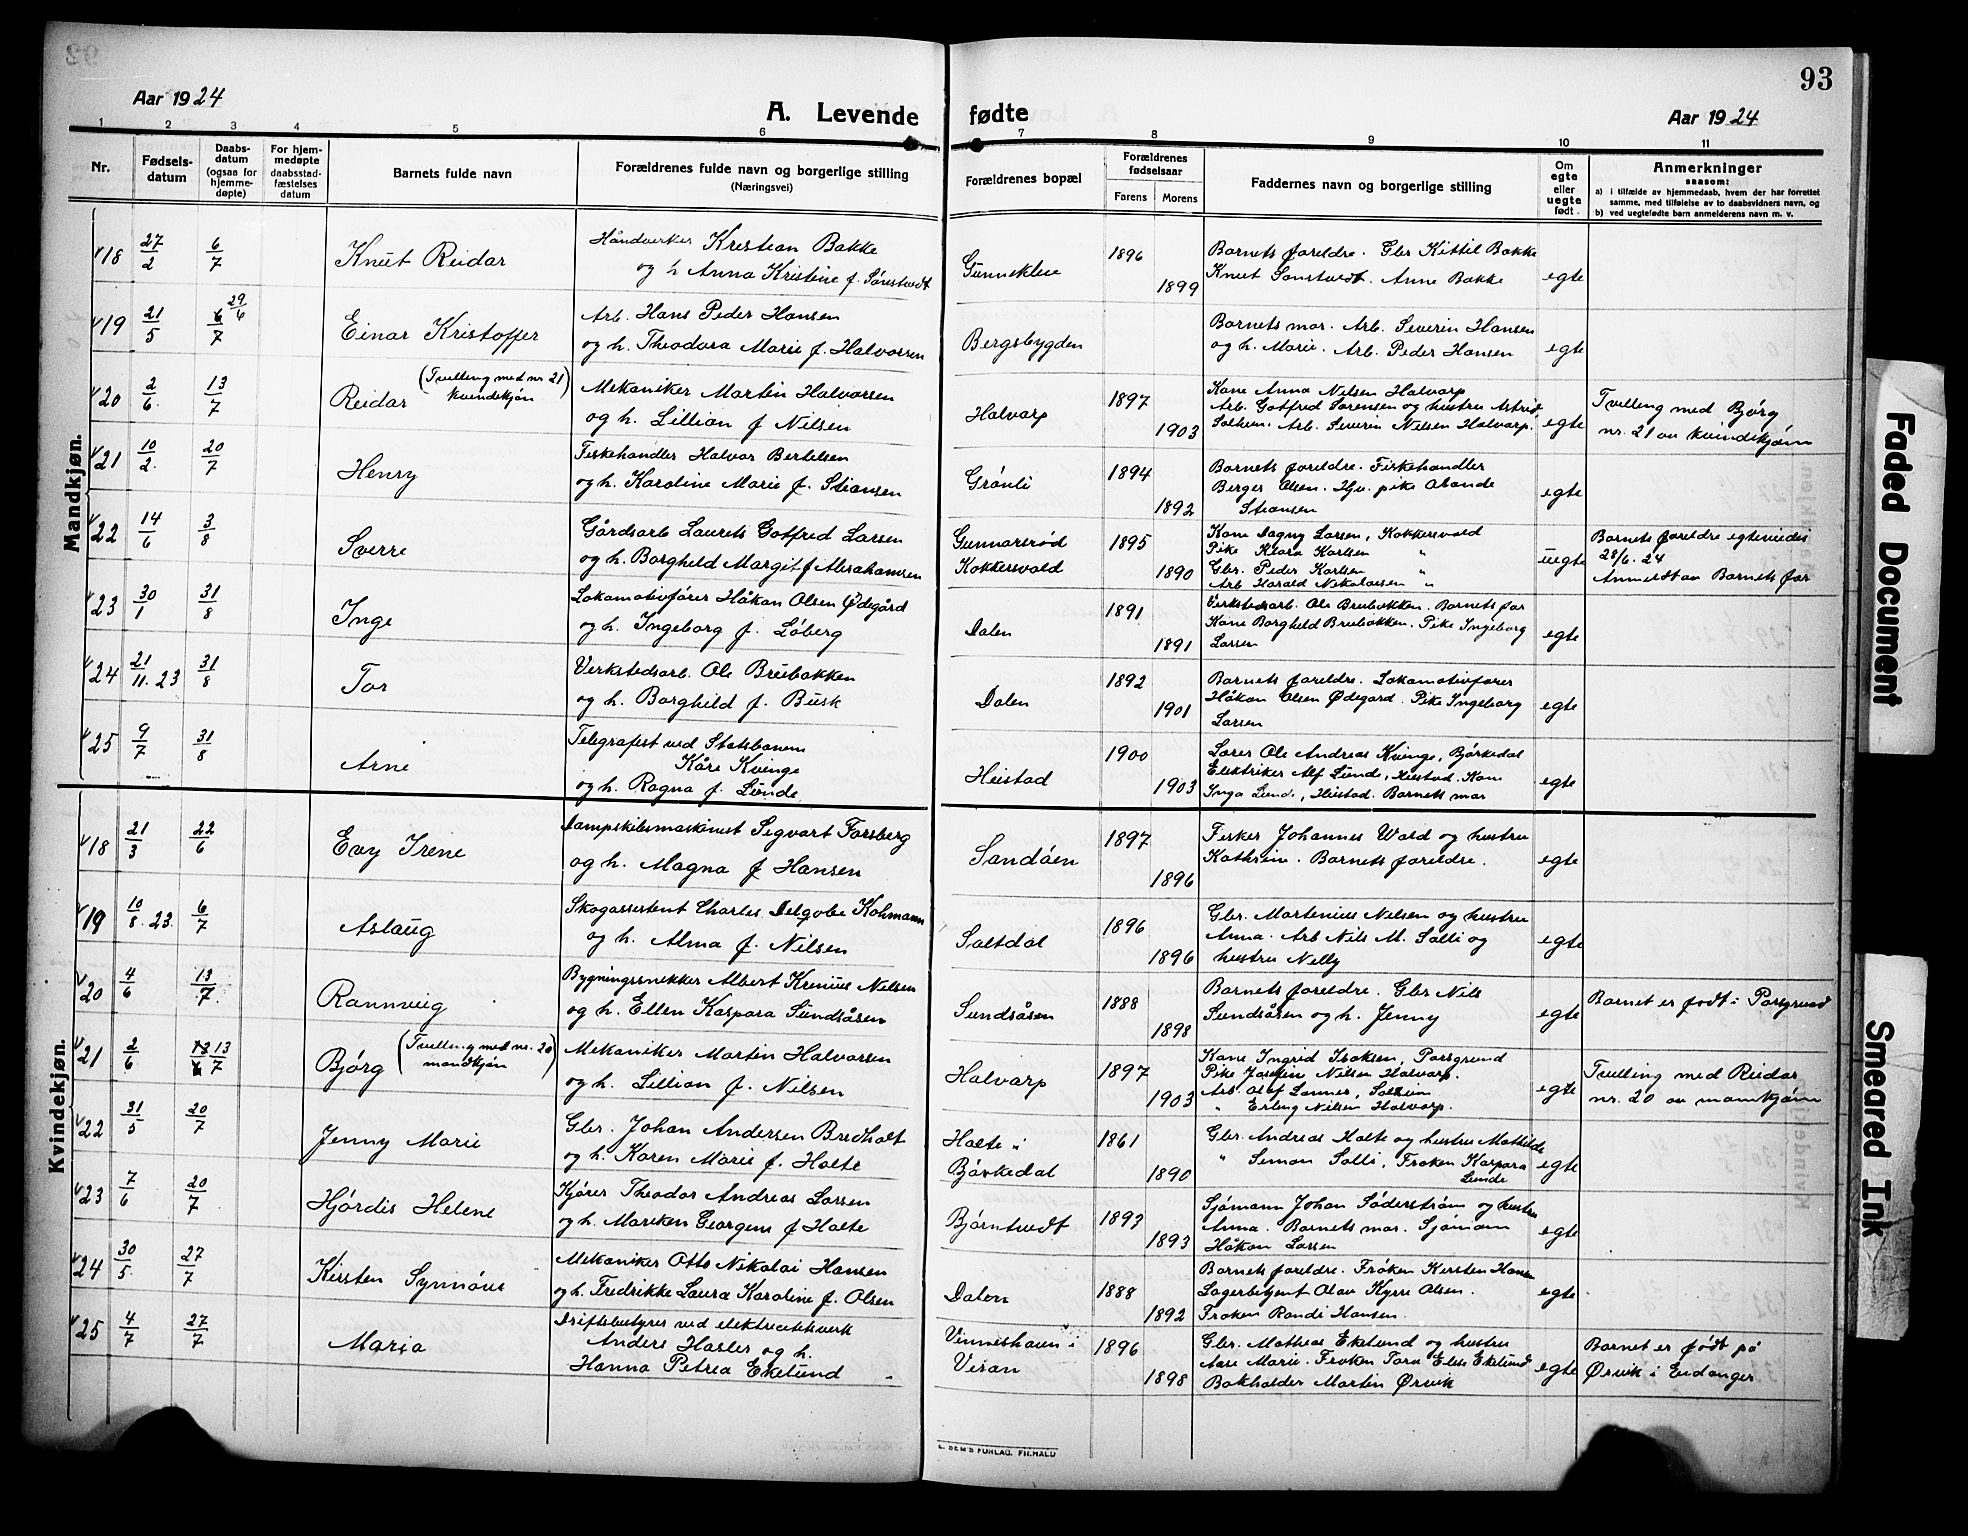 93
Aar 1924
A. Levende fødte
Aar 1924
1 2 3 4 5 6 7 8 9 10 11
Nr.
Fødsels-
datum
Daabs-
datum
(ogsaa for
hjemme-
døpte)
For hjem-
medøpte
daabsstad-
fæstelses
datum
Barnets fulde navn
Forældrenes fulde navn og borgerlige stilling
(Næringsvei)
Forældrenes bopæl
Forældrenes
fødselsaar
Farens Morens
Faddernes navn og borgerlige stilling
Om
egte
eller
uegte
født.
Anmerkninger
saasom:
a) i tilfælde av hjemmedaab, hvem der har forrettet
samme, med tilføielse av to daabsvidners navn, og
b) ved uegtefødte barn anmelderens navn m. v.
Mandkjøn.
18 27/2 6/7 Knut Reidar
Håndverker Kristian Bakke
og h Anna Kristine f. Sørestvedt
Gunneklei 1896 1899
Barnets foreldre. Gbr Kittil Bakke
Knut Sanstvedt. Anne Bakke
egte
19 21/5 6/7 29/6 Einar Kristoffer
Arb. Hans Peder Hansen
og h. Theodora Marie f. Halvorsen
Bergsbygden
Barnets mor. Arb. Severin Hansen
og h. Marie. Arb. Peder Hansen
egte
20 2/6. 13/7 Reidar (Tvilling med nr. 21 kvindekjøn)
Mekaniker Martin Halvorsen
og h. Lillian f Nilsen
Halvarp 1897 1903
Kone Anna Nilsen Halvarp
Arb. Gotfred Sørensen og hustru Astrid
Solheim. Arb. Severin Nilsen Halvarp.
egte
Tvilling med Bjørg
nr. 21 av kvindekjøn
21 10/2. 20/7 Henry
Fiskehandler Halvor Bertelsen
og h. Karoline Marie f. Stiansen
Grønli 1894 1892
Barnets foreldre. Fiskehandler
Berger Olsen. Hjv. pike Olande
Stiansen
egte
22 14/6 3/8 Sverre
Gårdsarb Laurits Gotfred Larsen
og h. Borghild Margit f Abrahamsen
Gunnarsrød
Kokkersvold
1895 1890
Kone Dagny Larsen, Kokkersvold
Pike Klara Karlsen "
Gbr. Peder Karlsen "
Arb Harald Nikolaisen "
uegte
Barnets foreldre egteviedes
28/6. 24
Anmeldt av Barnets far
23 30/1 31/8 Inge
Lokomotivfører Håkon Olsen Ødegård
og h. Ingeborg f. Løberg
Dalen 1891 1891
Verkstedsarb. Ole Breibakken. Barnets far
Kone Borghild Breibakken. Pike Ingeborg
Larsen
egte
24 21/11. 23 31/8 Tor
Verkstedsarb. Ole Breibakken
og h. Borghild f. Busk
Dalen 1892 1901
Barnets foreldre. Lokomotivfører
Håkon Olsen Ødegård. Pike Ingeborg
Larsen
egte
25 9/7 31/8 Arne
Telegrafist ved Statsbanen
Kåre Kvinge
og h. Ragna f. Lunde
Heistad 1900 1903
Lærer Ole Andreas Kvinge, Bjørkedal
Elektriker Alf Lunde, Heistad. Kone
Inga Lunde, Heistad. Barnets mor
egte
Kvindekjøn.
18 21/3 22/6 Evy Irene
Dampskibsmaskinist Sigvart Forsberg
og h. Magna f Hansen
Sandøen 1897 1896
Fisker Johannes Wold og hustru
Kathrine. Barnets foreldre.
egte
19 10/8. 23. 6/7 Aslaug
Skogassistent Charles Delgobe Kohmann
og h. Alma f. Nilsen
Saltdal 1896 1896
Gbr. Martinius Nilsen og hustru
Anna. Arb Nils M. Solli og
hustru Nelly
egte
20 4/6 13/7 Rannveig
Bygningssnekker Albert Krinius Nilsen
og h. Ellen Kaspara Sundsåsen
Sundsåsen 1888 1898
Barnets foreldre. Gbr Nils
Sundsåsen og h. Jenny
egte
Barnet er født i Porsgrund
21 2/6 13/7 Bjørg (Tvilling med nr. 20 mandkjøn)
Mekaniker Martin Halvorsen
og h. Lillian f. Nilsen
Halvarp 1897 1903
Kone Ingrid Isaksen, Porsgrund
Pike Josefin Nilsen Halvarp.
Arb. Olaf Lanner, Solheim
" Erling Nilsen Halvarp.
egte
Tvilling med Reidar
nr. 20 av mannkjøn
22 31/5 20/7 Jenny Marie
Gbr. Johan Andersen Bredholt
og h. Karen Marie f. Holte
Holte i
Bjørkedal
1861 1890
Gbr. Andreas Holte og hustru Mathilde
" Simon Solli, Frøken Kaspara
Lunde
egte
23 7/6 20/7 Hjørdis Helene
Kjører Theodor Andreas Larsen
og h. Mariken Georgine f Holte
Bjørntvedt 1893 1893
Sjømann Johan Søderstrøm og hustru
Anna. Barnets mor. Sjømann
Håkon Larsen
egte
24 30/5. 27/7 Kirsten Synnøve
Mekaniker Otto Nikolai Hansen
og h. Fredrikke Laura Karoline f. Olsen
Dalen 1888 1892
Barnets foreldre. Frøken Kirsten Hansen
Lagerbetjent Olav Kyrre Olsen.
Frøken Randi Hansen.
egte
25 4/7 27/7 Maria
Driftsbestyrer ved elektricitetsverk
Anders Hasler og h.
Hanna Petrea Ekelund
Vinnishavn i
Visan
1896 1898
Gbr. Mathias Ekelund og hustru
Aase Marie. Frøken Tora Elise Ekelund
Bokholder Martin Ørvik
egte
Barnet er født på
Ørvik i Eidanger
E. SEM'S FORLAG. FR.HALD
Faded Document
Smeared Ink